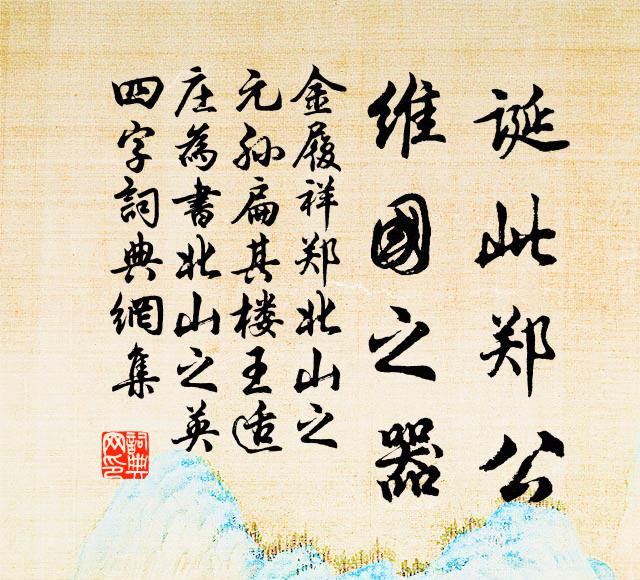 诞此郑公
维國之器
金履祥郑北山之
元孙扁其楼王适
庄為書北山之英
四字詞典網集
詞典
网印